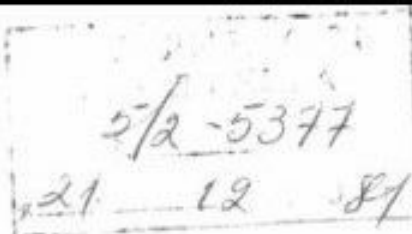 5/2-5377
21. 12 81